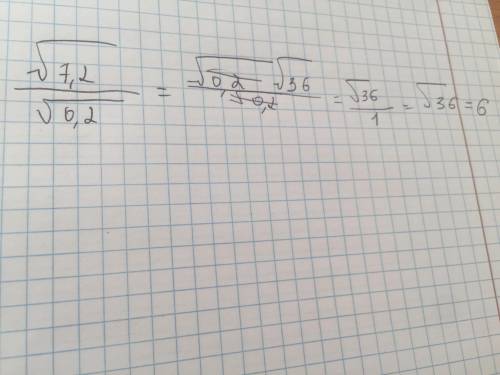 √7,2 / √0,2 = √0,2 √36 / √0,2 = √36 / 1 = √36 = 6